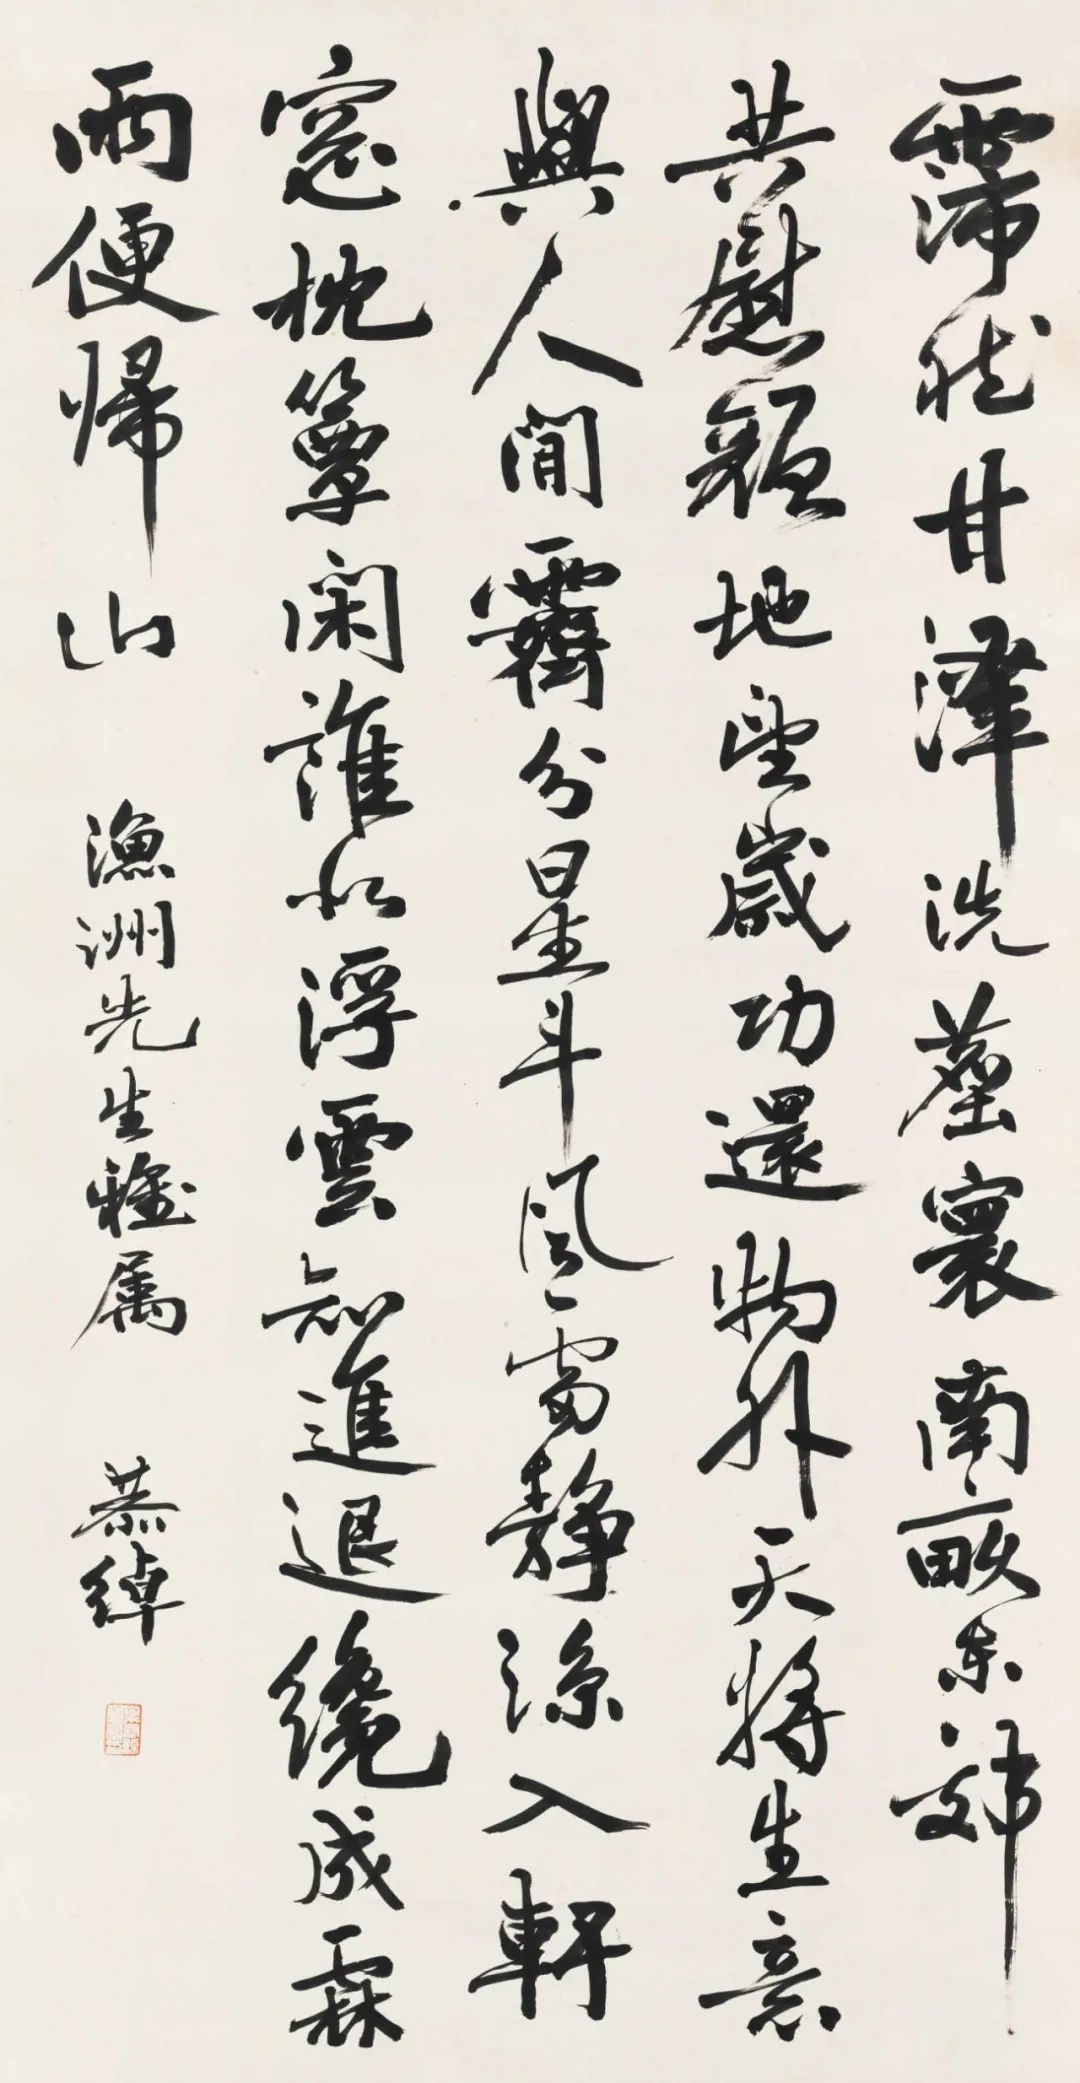 霈然甘澤洗塵寰南畝東郊
共慰顔地望歲功還物外天將生意
與人間霽分星斗風雷靜涼入軒
窓枕簟闲誰似浮雲知進退纔成霖
雨便帰山
漁洲先生雅属
恭綽